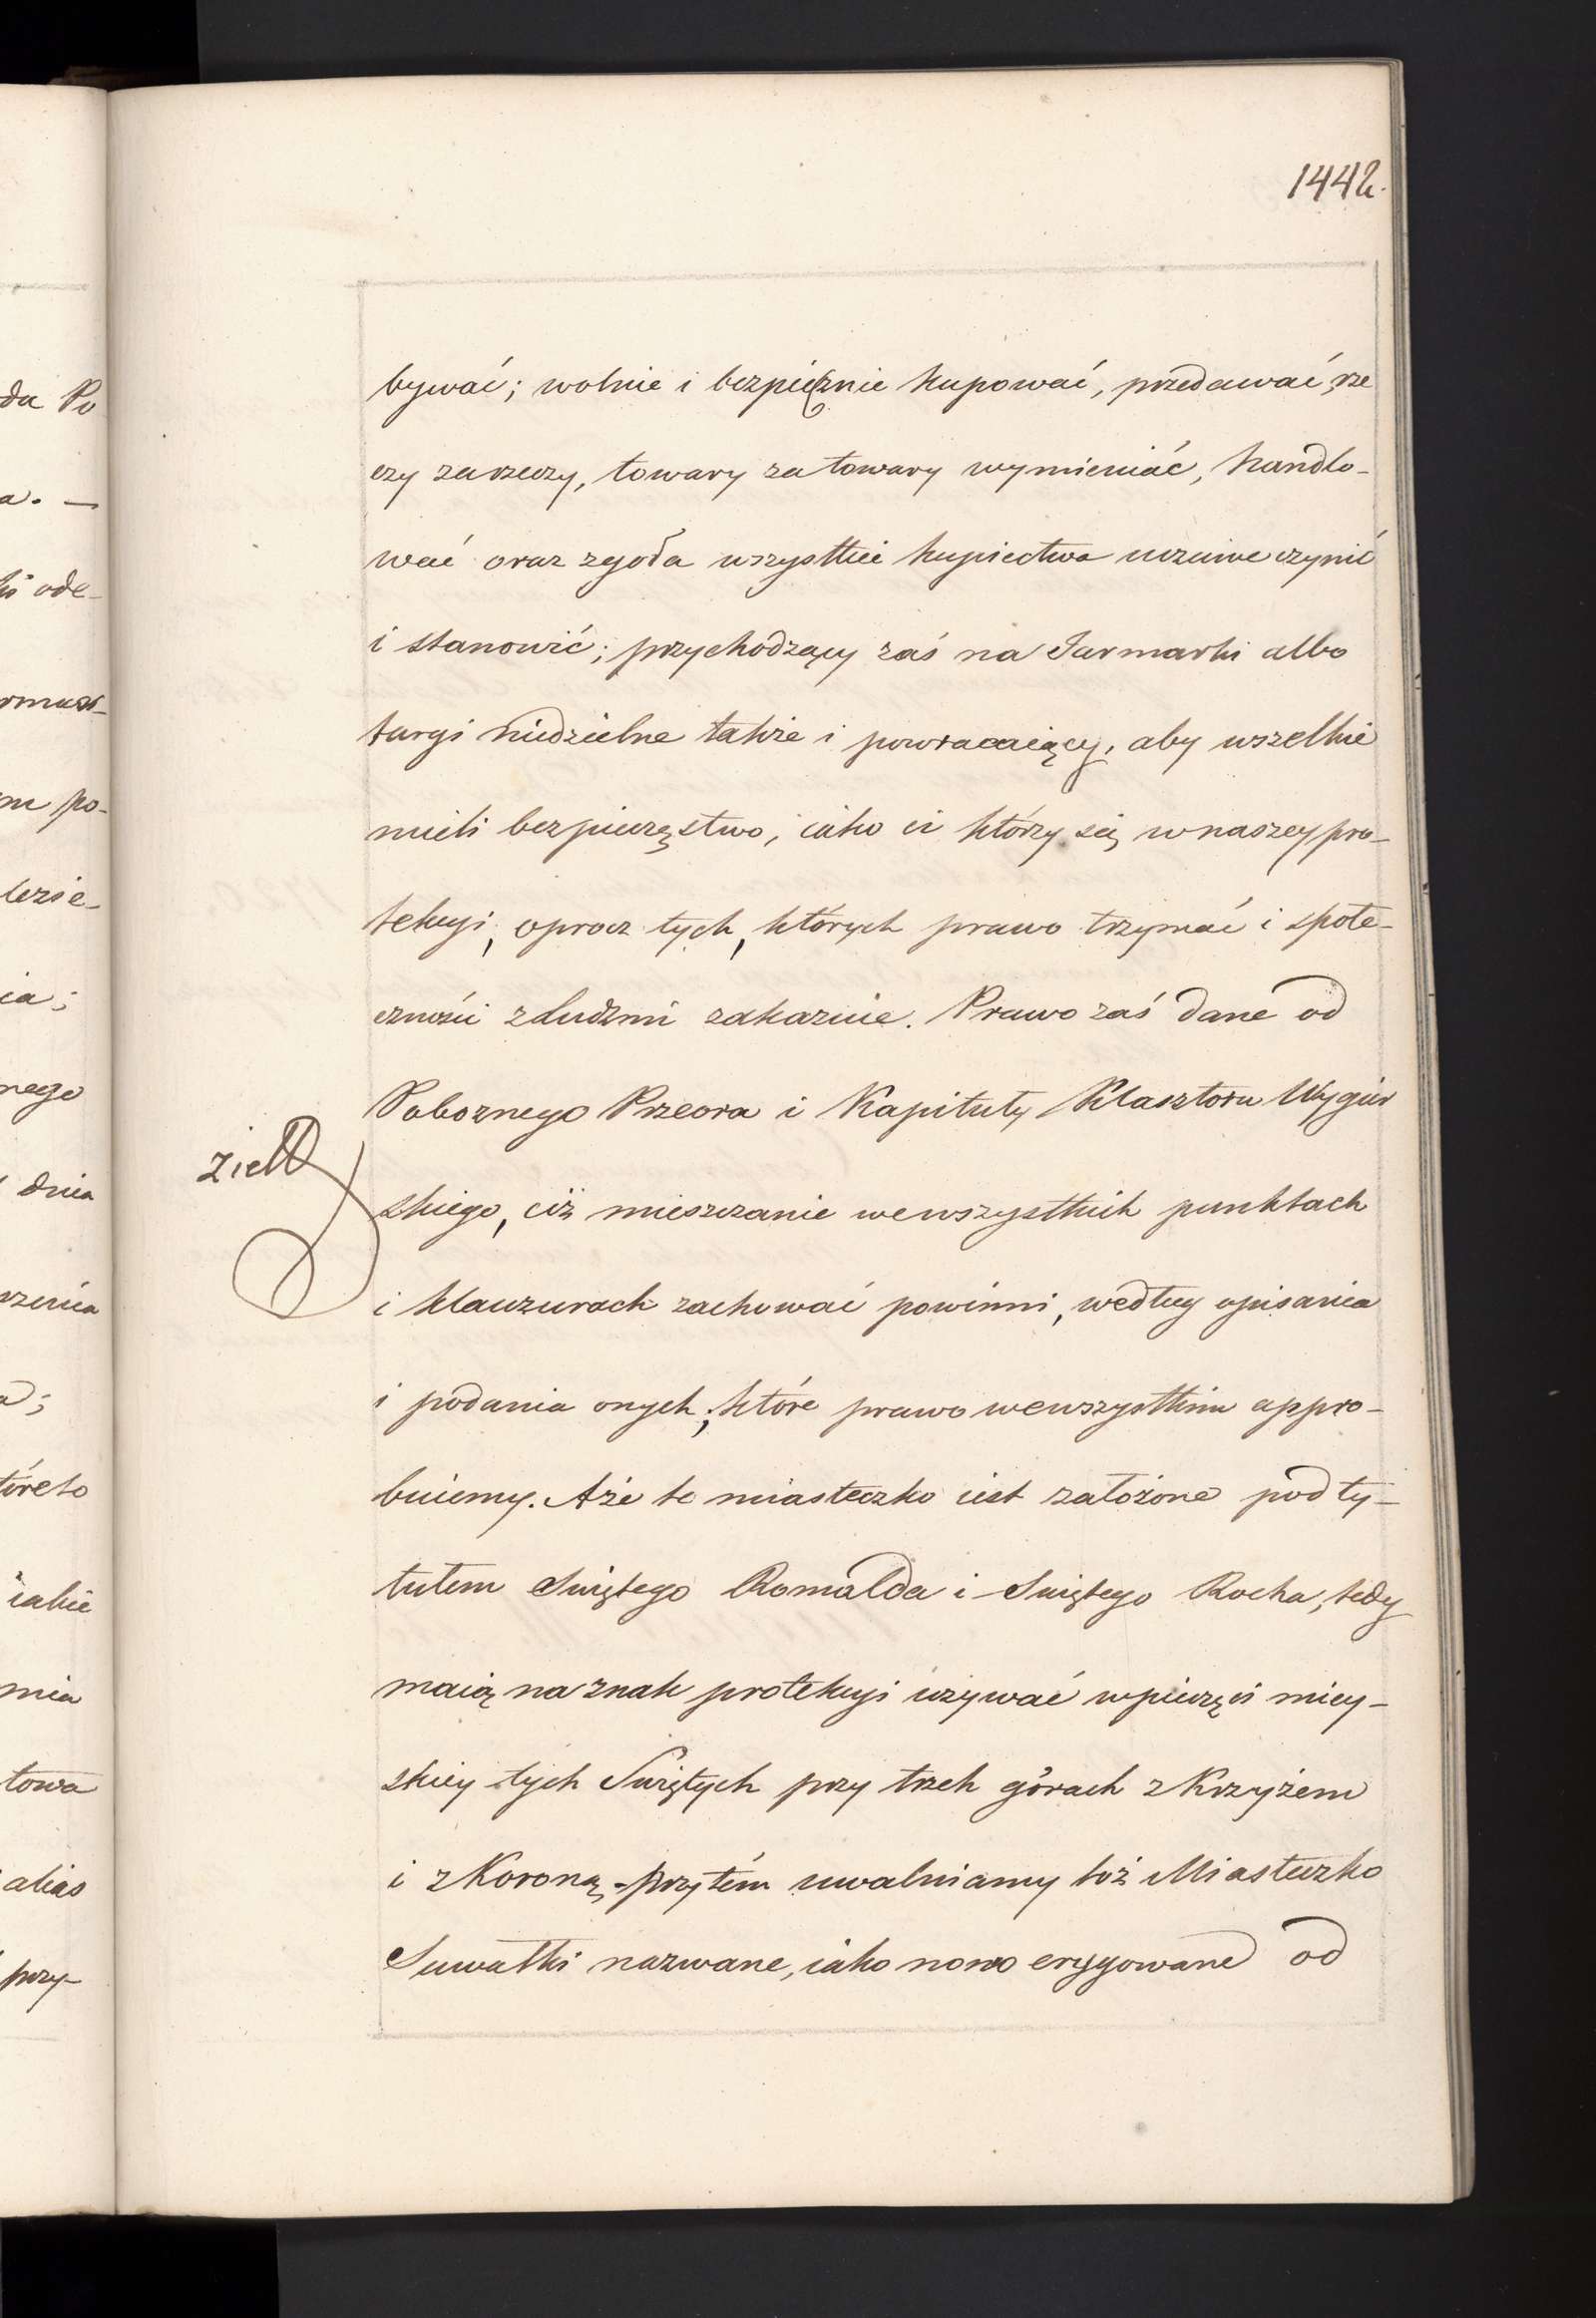 1442.
bywać; wolnie i bezpiecznie kupować, przedawać, rze
czy za rzeczy, towary za towary wymieniać, handlo-
wać oraz zgoła wszystkie kupiectwa uczciwe czynić
i stanowić; przychodzący zaś na Jarmarki albo
targi niedzielne także i powracaiący, aby wszelkie
mieli bezpieczęstwo, iako ci którzy są w naszey pro-
tekcyi, oprocz tych, których prawo trzymać i społe-
czności z ludzmi zakazuie. Prawo zaś dane od
Pobożnego Przeora i Kapituły Klasztoru Wygier
skiego, ciż mieszczanie we wszystkich punktach
i klauzurach zachować powinni, według opisania
i podania onych; które prawo we wszystkim appro-
buiemy. A że to miasteczko iest założone pod ty-
tułem Swiętego Romalda i Swiętego Rocha, tedy
maią na znak protekcyi używać w pieczęci miey-
skiey tych Swiętych przy trzech górach z Krzyżem
i z Koroną. przytém uwalniamy toż Miasteczko
Suwałki nazwane, iako nowo erygowane od
da Po
a. —
ode-
po-
ia;
nego
dnia
a;
tóreto
iakie
mia
towa
alias
przy-